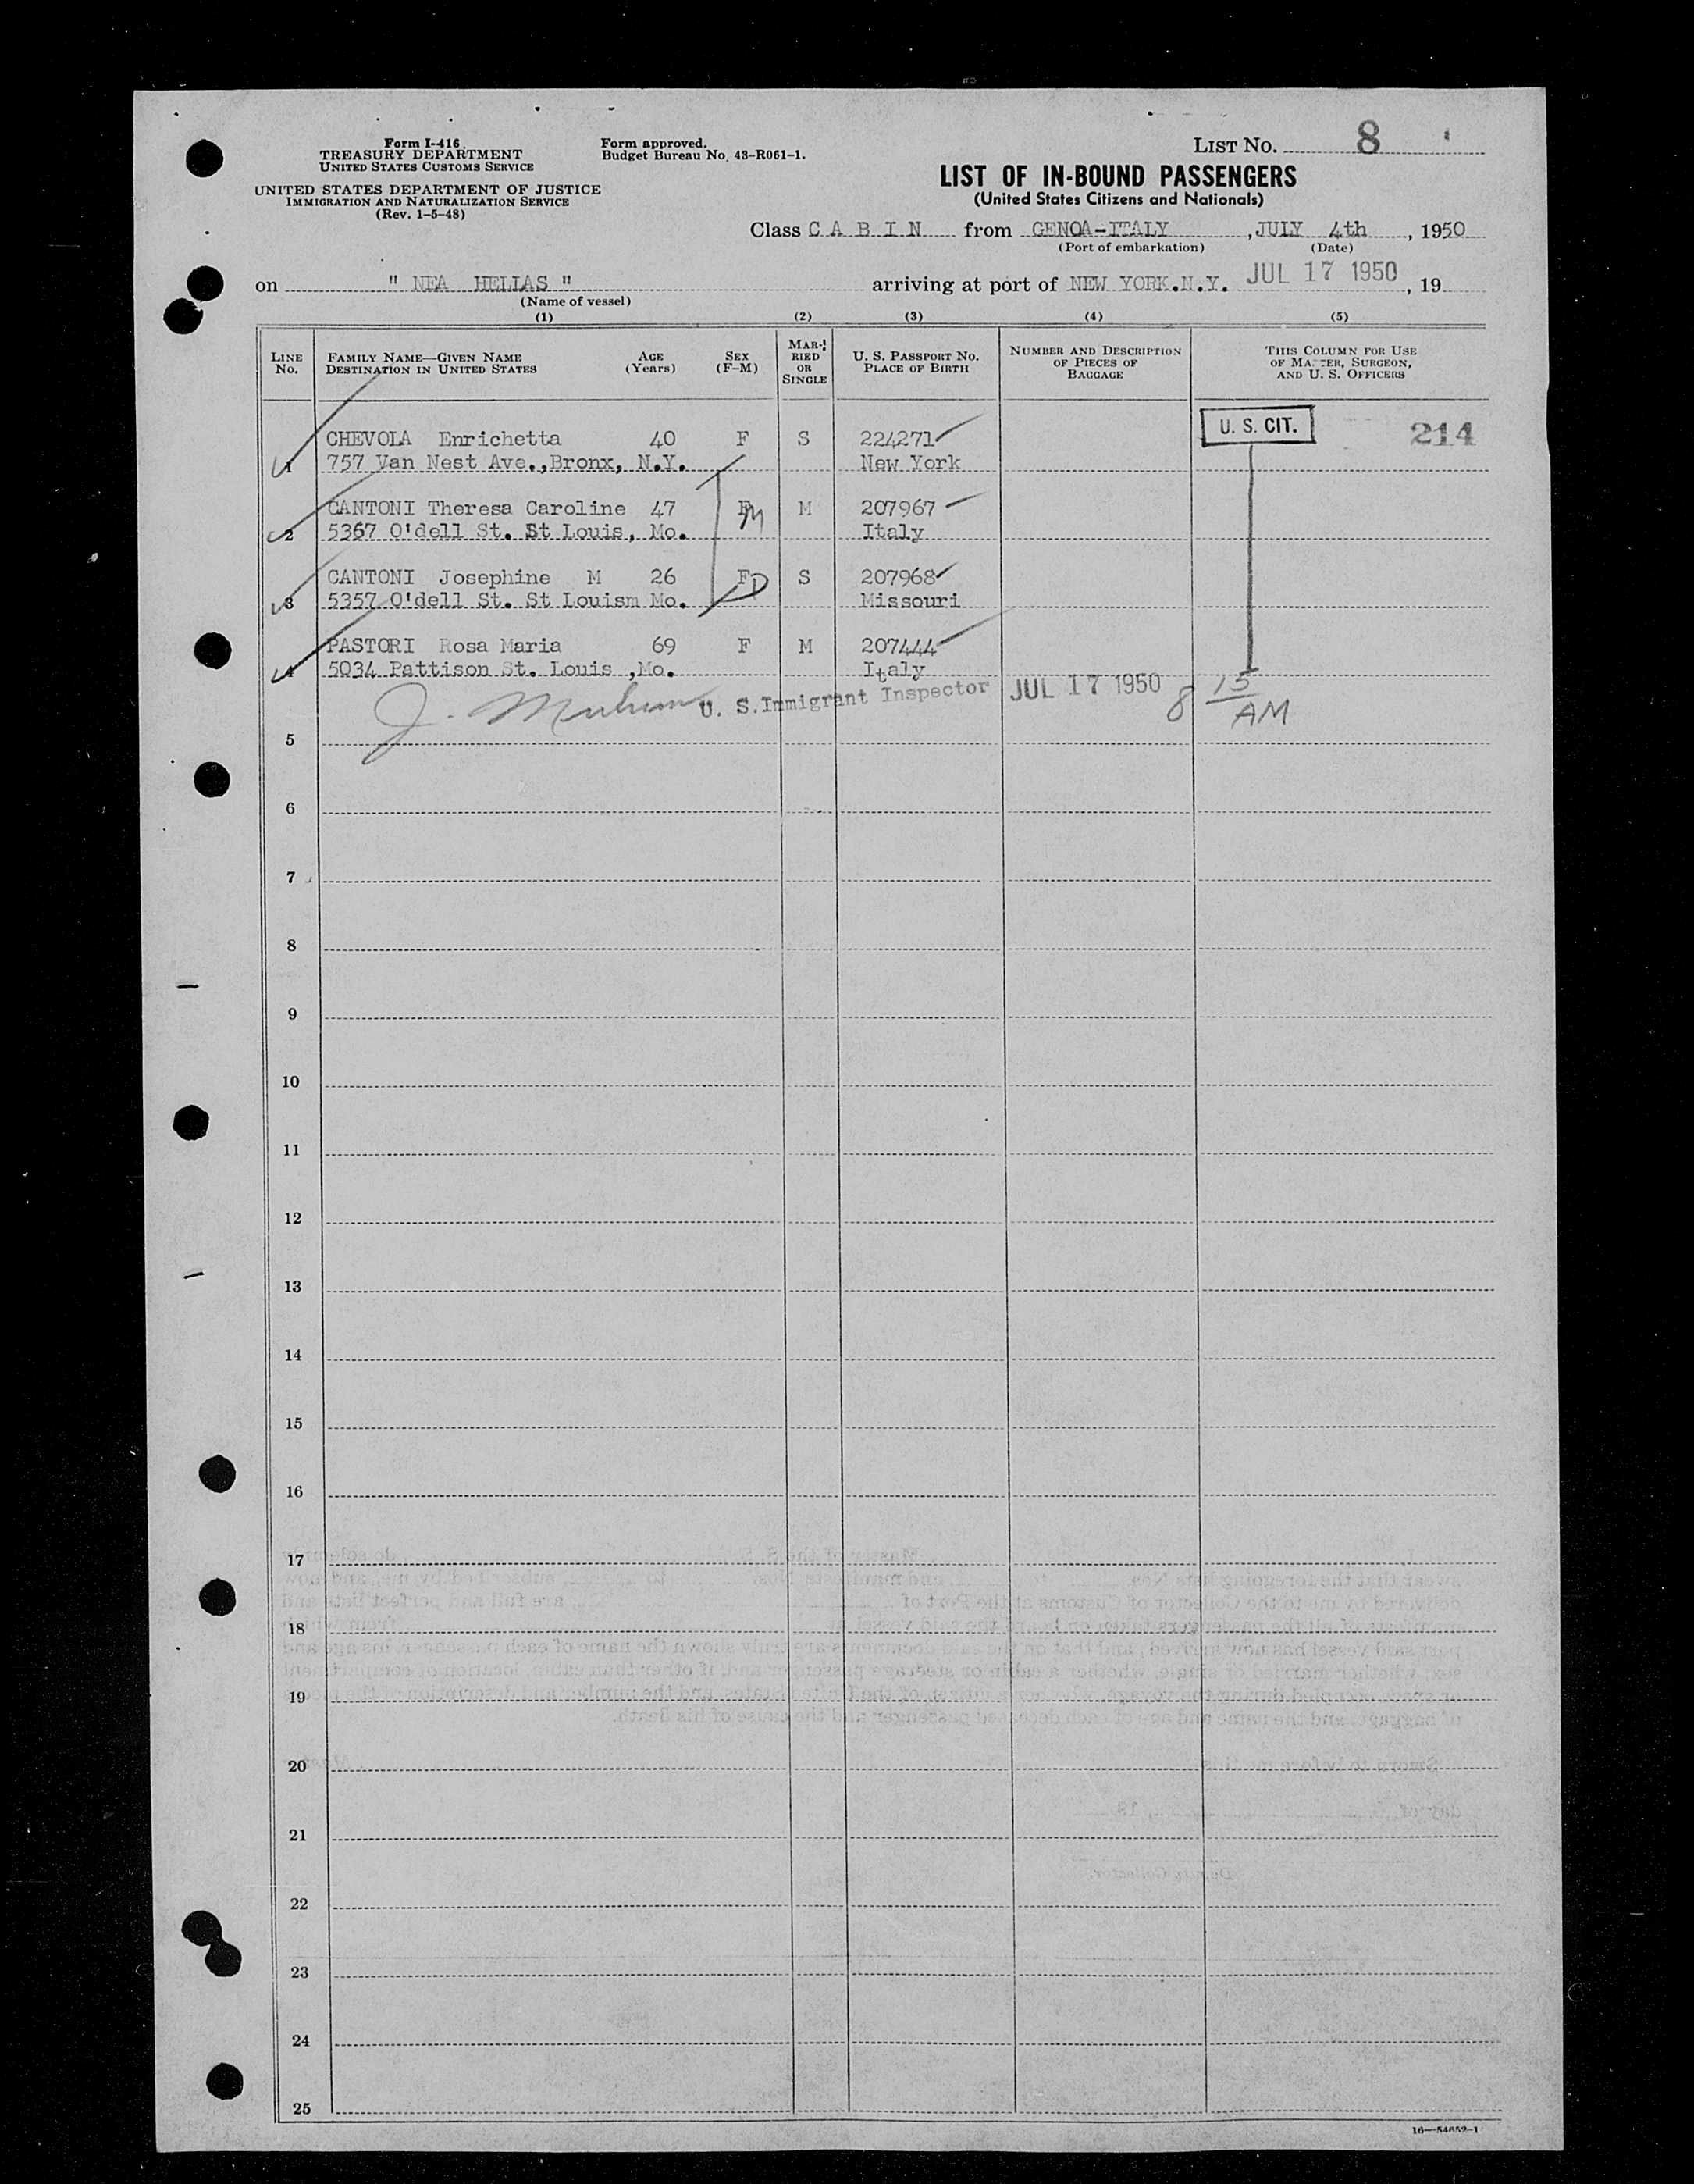 Form I-416
TREASURY DEPARTMENT
UNITED STATES CUSTOMS SERVICE
UNITED STATES DEPARTMENT OF JUSTICE
IMMIGRATION AND NATURALIZATION SERVICE
(Rev. 1-5-48)
Form approved.
Budget Bureau No. 43-R061-1.
LIST No. 8
LIST OF IN-BOUND PASSENGERS
(United States Citizens and Nationals)
Class C A B I N from GENOA-ITALY , JULY 4th , 1950
(Port of embarkation) (Date)
on " NEA HELLAS " arriving at port of NEW YORK.N.Y. JUL 17 1950 , 19
(Name of vessel)
(1) (2) (3) (4) (5)
LINE No.
FAMILY NAME—GIVEN NAME
DESTINATION IN UNITED STATES
AGE (Years)
SEX (F-M)
MARRIED OR SINGLE
U. S. PASSPORT No.
PLACE OF BIRTH
NUMBER AND DESCRIPTION OF PIECES OF BAGGAGE
THIS COLUMN FOR USE OF MASTER, SURGEON, AND U. S. OFFICERS
CHEVOLA Enrichetta 40 F S 224271 U. S. CIT. 214
1 757 Van Nest Ave.,Bronx, N.Y. New York
CANTONI Theresa Caroline 47 F M M 207967
2 5367 O'dell St. St Louis, Mo. Italy
CANTONI Josephine M 26 F D S 207968
3 5357 O'dell St. St Louism Mo. Missouri
PASTORI Rosa Maria 69 F M 207444
4 5034 Pattison St. Louis ,Mo. Italy
J. U. S. Immigrant Inspector JUL 17 1950 8 15 AM
5
6
7
8
9
10
11
12
13
14
15
16
17
18
19
20
21
22
23
24
25